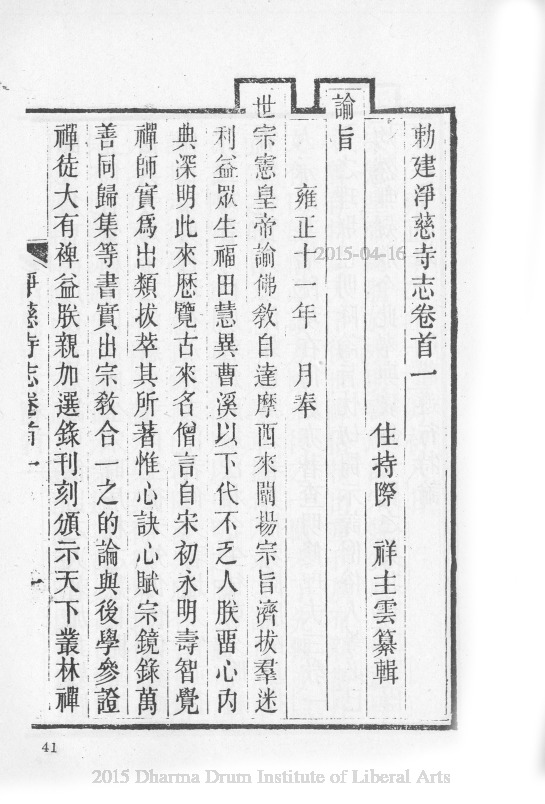 勅建淨慈寺志卷首一
住持際 祥主雲纂輯
諭旨
雍正十一年 月奉
世宗憲皇帝諭佛敎自達摩西來闡揚宗旨濟拔羣迷
利益眾生福田慧異曹溪以下代不乏人朕畱心內
典深明此來歴覽古來名僧言自宋初永明壽智覺
禪師實爲出類拔萃其所著惟心訣心賦宗鏡錄萬
善同歸集等書實出宗敎合一之的論與後學參證
禪徒大有裨益朕親加選錄刊刻頒示天下叢林禪
淨慈寺志卷首一
一
41
2015-04-16
2015 Dharma Drum Institute of Liberal Arts